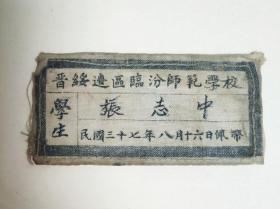 晋綏邊區臨汾師範學校
學生
張志中
民國三十七年八月十六日佩帶